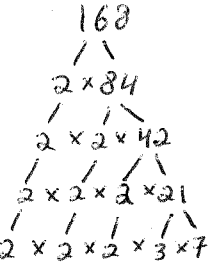 168
2 × 84
2 × 2 × 42
2 × 2 × 2 × 21
2 × 2 × 2 × 3 × 7